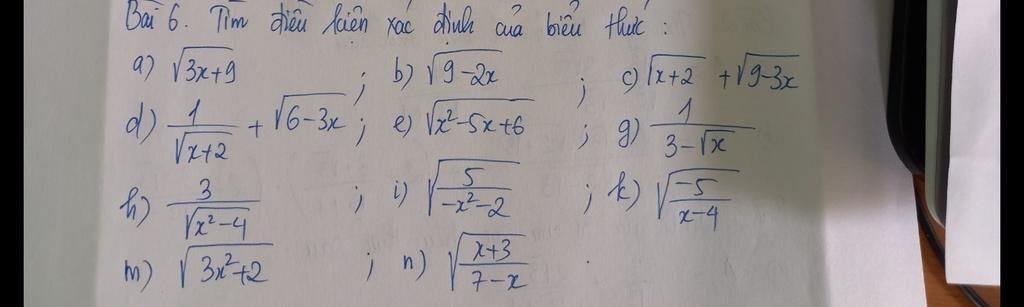 Bài 6. Tìm điều kiện xác định của biểu thức :
a) √(3x+9) ; b) √(9-2x) ; c) √(x+2) + √(9-3x)
d) 1/√(x+2) + √(6-3x) ; e) √(x²-5x+6) ; g) 1/(3-√x)
h) 3/√(x²-4) ; i) √(5/(-x²-2)) ; k) √(-5/(x-4))
m) √(3x²+2) ; n) √((x+3)/(7-x)) .